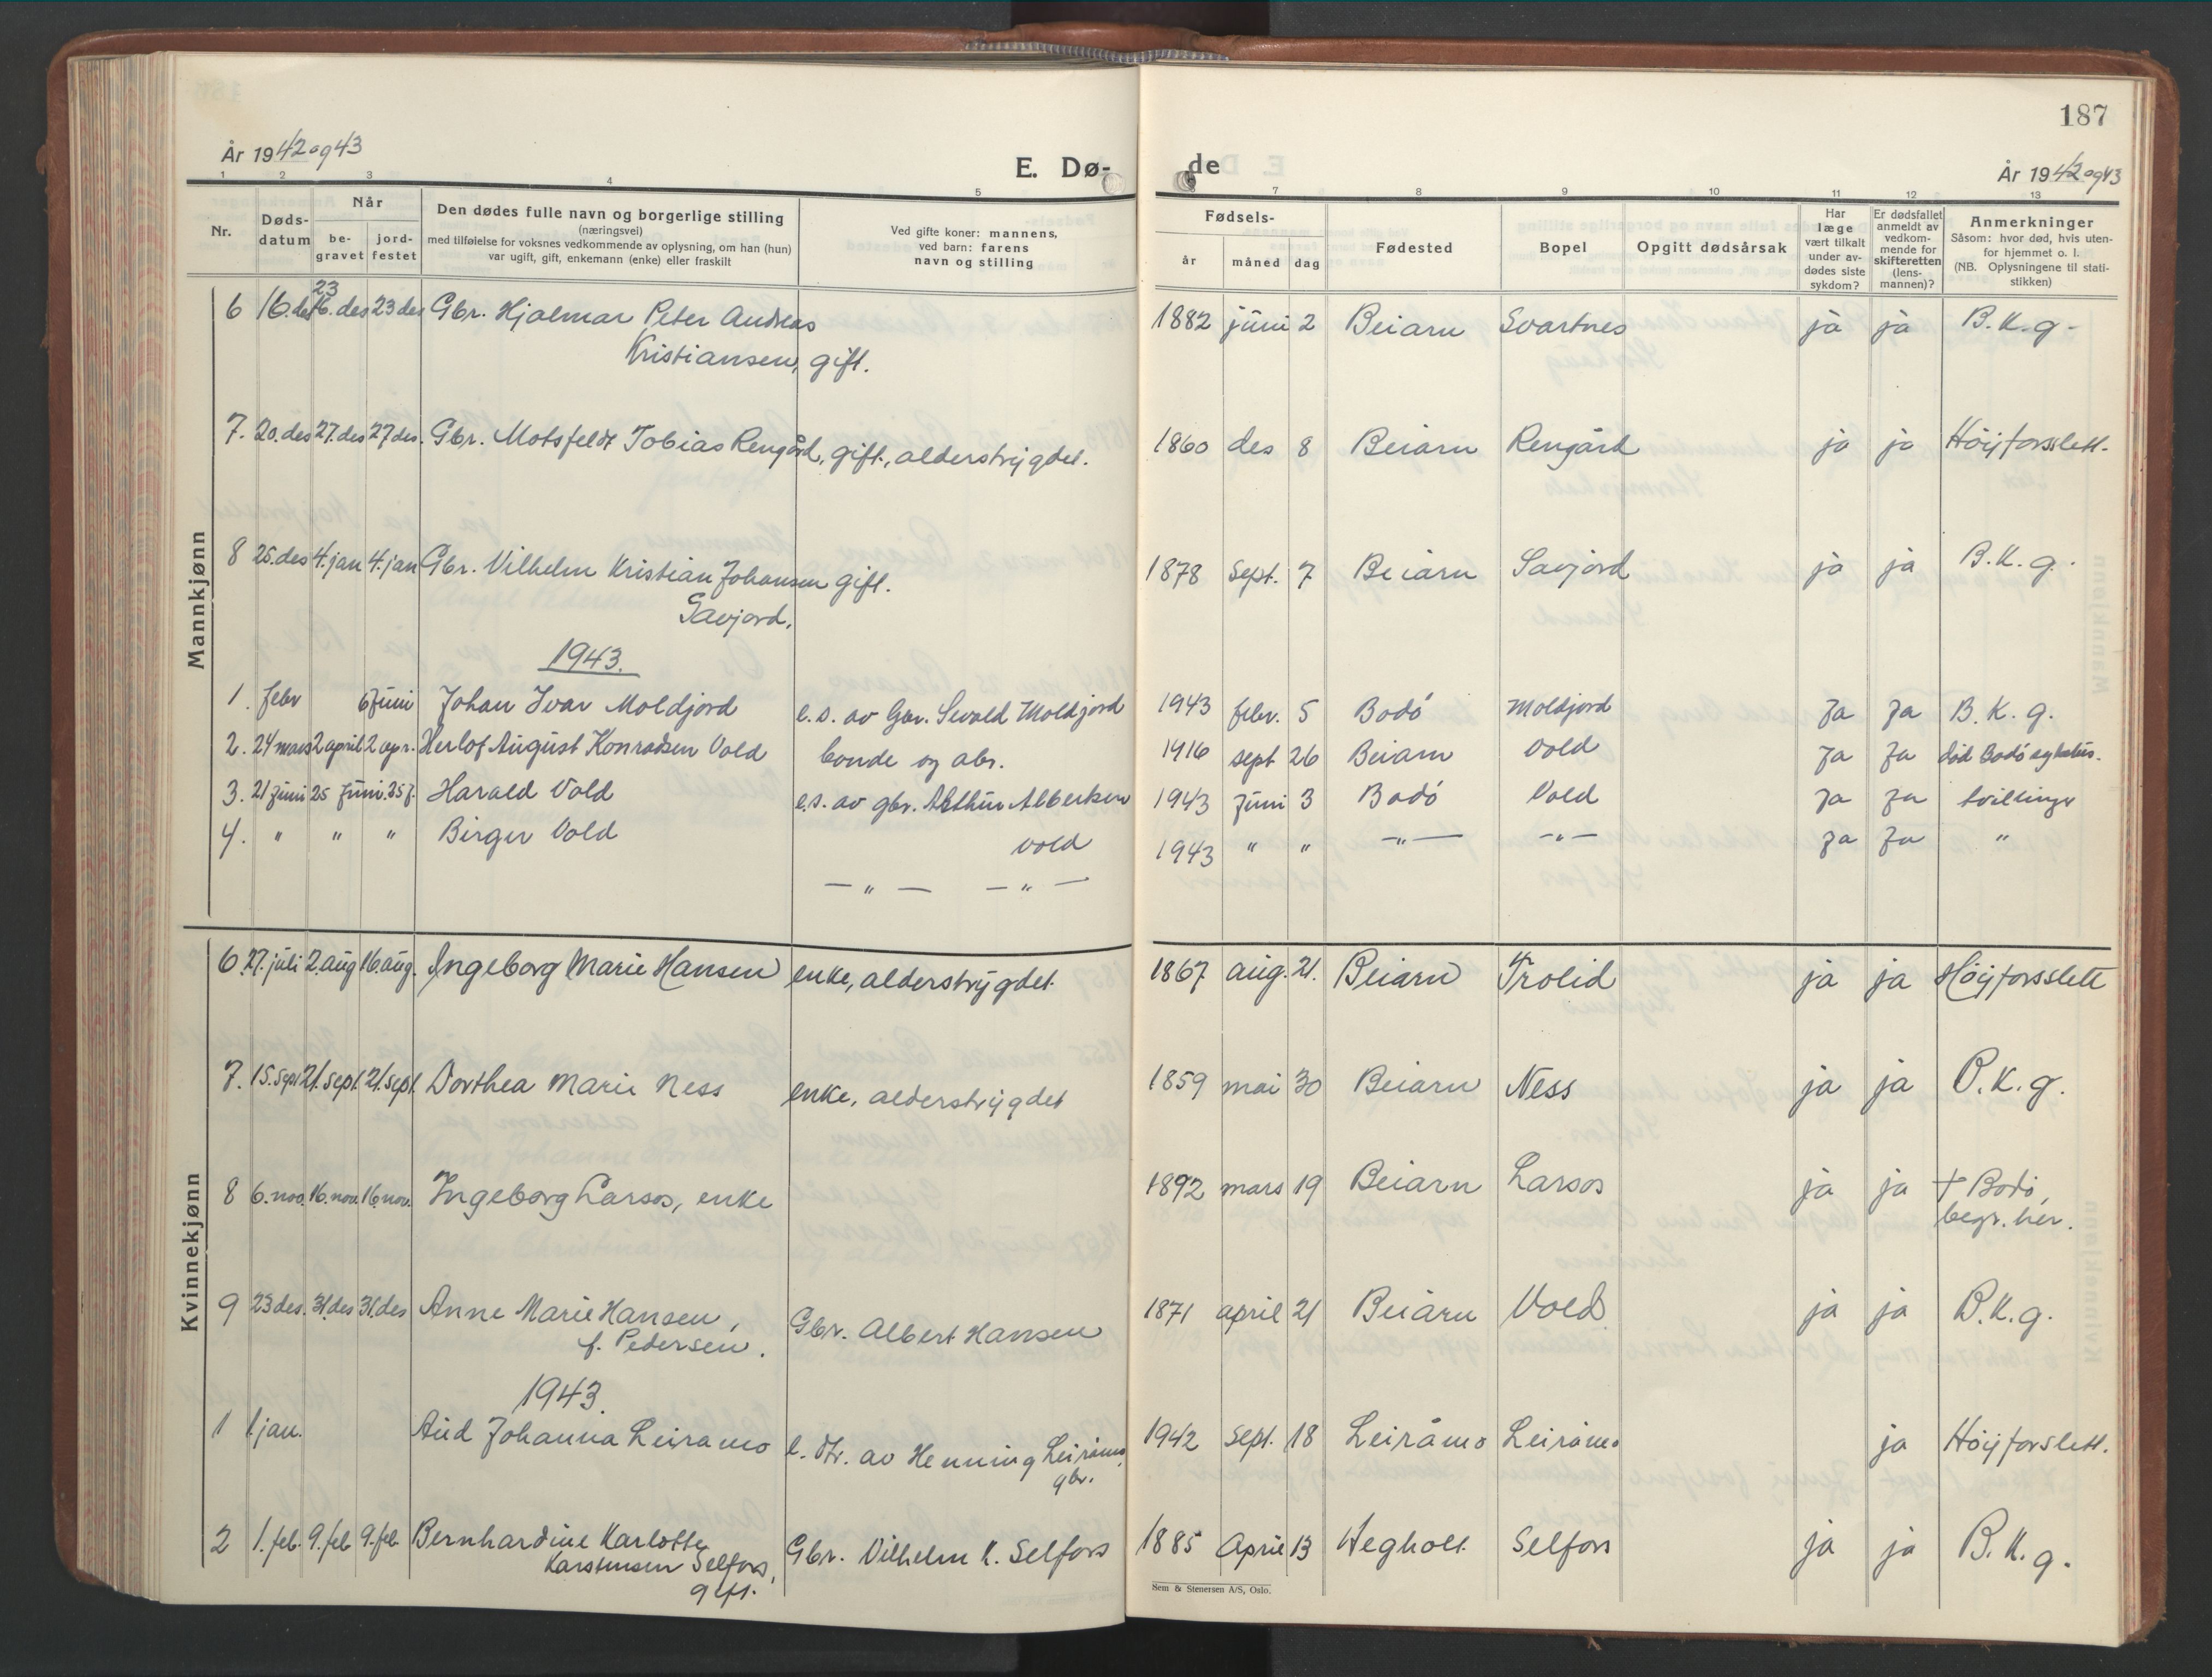 187
År 1942 og 43
E. Dø-
de
År 1942 og 43
1 2 3 4 5 6 7 8 9 10 11 12 13
Nr.
Døds-
datum
Når
be-
gravet
jord-
festet
Den dødes fulle navn og borgerlige stilling
(næringsvei)
med tilføielse for voksnes vedkommende av oplysning, om han (hun)
var ugift, gift, enkemann (enke) eller fraskilt
Ved gifte koner: mannens,
ved barn: farens
navn og stilling
Fødsels-
år måned dag
Fødested
Bopel
Opgitt dødsårsak
Har
læge
vært tilkalt
under av-
dødes siste
sykdom?
Er dødsfallet
anmeldt av
vedkom-
mende for
skifteretten
(lens-
mannen)?
Anmerkninger
Såsom: hvor død, hvis uten-
for hjemmet o. l.
(NB. Oplysningene til stati-
stikken)
Mannkjønn
23
6 16. des 16. des 23 des Gbr. Hjalmar Peter Andreas 1882 juni 2 Beiarn Svartnes ja ja B.K.g.
Kristiansen, gift.
7. 20. des 27. des 27 des. Gbr. Motsfeldt Tobias Rengård, gift, alderstrygdet. 1860 des 8 Beiarn Rengård ja ja Höyforsslett.
8 25. des 4. jan 4. jan Gbr. Vilhelm Kristian Johansen gift. 1878 Sept. 7 Beiarn Savjord ja ja B.K.g.
Savjord.
1943.
1. febr 6 Juni Johan Ivar Moldjord e.s. av Gbr. Sevald Moldjord 1943 febr. 5 Bodó Moldjord Ja Ja B.K.g.
2. 24 mars 2 april 2 apr. Herlof August Konradsen Vold bonde og abr. 1916 sept 26 Beiarn Vold Ja Ja død Bodó sykehus.
3. 21 Juni 25 Juni 25 J. Harald Vold e.s. av gbr. Arthur Albertsen 1943 Juni 3 Bodó Vold Ja Ja tvillinger
4. " " " Birger Vold Vold 1943 " " -"- -"- Ja Ja "
— " — — " —
Kvinnekjønn
6. 27. juli 2. aug 16. aug. Ingeborg Marie Hansen enke, alderstrygdet. 1867 aug. 21. Beiarn Trolid ja ja Höyforsslett
7. 15. sept 21. sept. 21. sept. Dorthea Marie Ness enke, alderstrygdet 1859 mai 30 Beiarn Ness ja ja B.K.g.
8 6. nov. 16. nov. 16. nov. Ingeborg Larsos, enke 1892 mars 19 Beiarn Larsos ja ja † Bodó,
begr. her.
9 23 des. 31. des 31. des Anne Marie Hansen, Gbr. Albert Hansen 1871 april 21 Beiarn Vold ja ja B.K.g.
f. Pedersen.
1943.
1 1. jan. Aud Johanna Leiramo e. dtr. av Henning Leiråmo, 1942 Sept. 18 Leiråmo Leiråmo ja Höyforslett.
gbr.
2 1. feb. 9. feb 9. feb. Bernhardine Karlotte Gbr. Vilhelm K. Selfors 1885 April 13 Hegholt Selfors ja ja B.K.g.
Karstensen Selfors,
gift.
Sem & Stenersen A/S, Oslo.